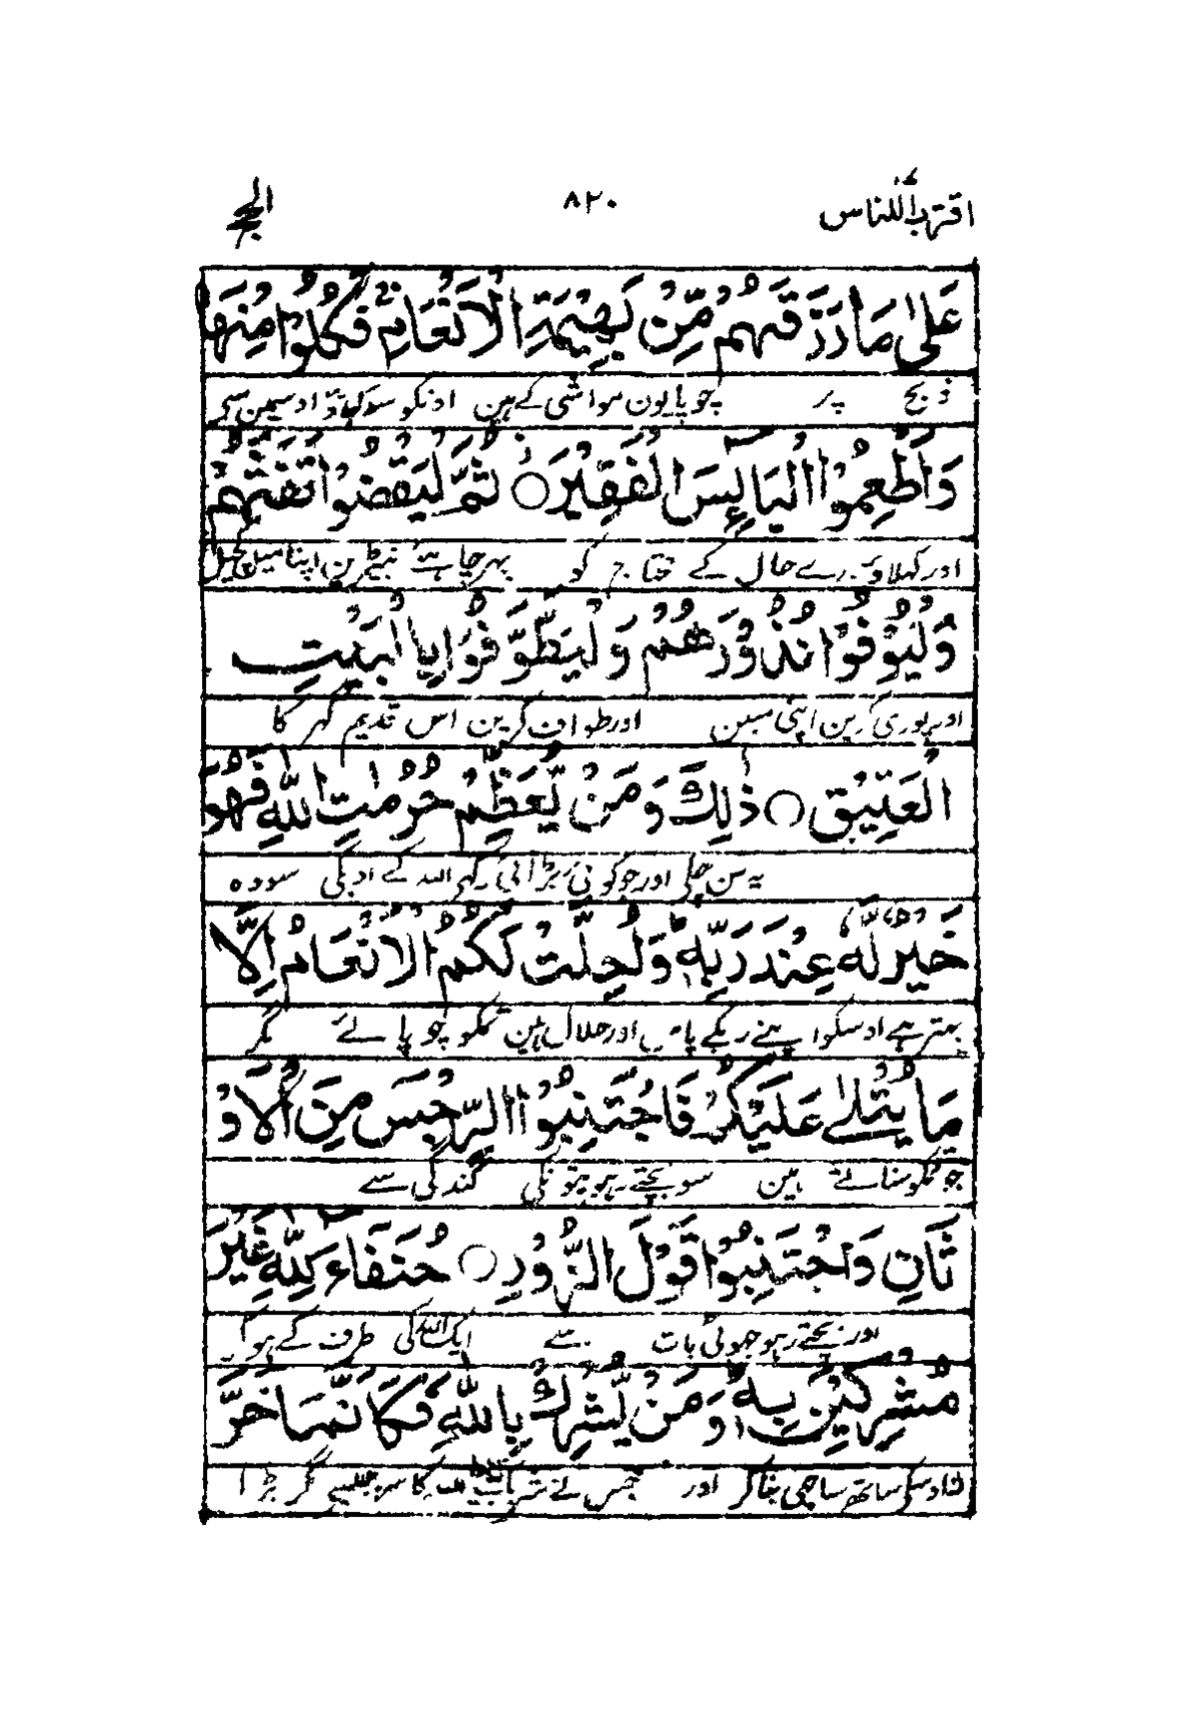 اقترب للناس ۱۷
۸۲۰
الحج
عَلٰى مَا رَزَقَهُمْ مِّنْ بَهِيْمَةِ الْاَنْعَامِ ۚ فَكُلُوْا مِنْهَا
ذبح پر چوپایون مواشی کے ہین اونکو سو کہاؤ اوسیمن سی
وَاَطْعِمُوا الْبَآئِسَ الْفَقِيْرَ ۝ ثُمَّ لْيَقْضُوْا تَفَثَهُمْ
اور کہلاؤ برے حال کے محتاج کو پہر چاہئے نبیڑین اپنا میل کچیل
وَلْيُوْفُوْا نُذُوْرَهُمْ وَلْيَطَّوَّفُوْا بِالْبَيْتِ
اور پوری کرین اپنی منتین اور طواف کرین اس قدیم گہر کا
الْعَتِيْقِ ۝ ذٰلِكَ وَمَنْ يُّعَظِّمْ حُرُمٰتِ اللّٰهِ فَهُوَ
یہ سن چکی اور جو کوئی بڑائی رکہی اللہ کے ادبکی سو وہ
خَيْرٌ لَّهٗ عِنْدَ رَبِّهٖ ؕ وَاُحِلَّتْ لَكُمُ الْاَنْعَامُ اِلَّا
بہتر ہے اوسکو اپنے ربکے پاس اور حلال ہین تمکو چوپائے مگر
مَا يُتْلٰى عَلَيْكُمْ فَاجْتَنِبُوا الرِّجْسَ مِنَ الْاَوْ
جو تمکو سناتے ہین سو بچتے رہو بتونکی گندگی سے
ثَانِ وَاجْتَنِبُوْا قَوْلَ الزُّوْرِ ۝ حُنَفَآءَ لِلّٰهِ غَيْرَ
اور بچتے رہو جہوٹی بات سے ایک اللہ کی طرف کے ہو کر
مُشْرِكِيْنَ بِهٖ ؕ وَمَنْ يُّشْرِكْ بِاللّٰهِ فَكَاَنَّمَا خَرَّ
نہ اوسکے ساتھ ساجہی بناکر اور جس نے شریک بنایا اللہ کا سو جیسے گر پڑا